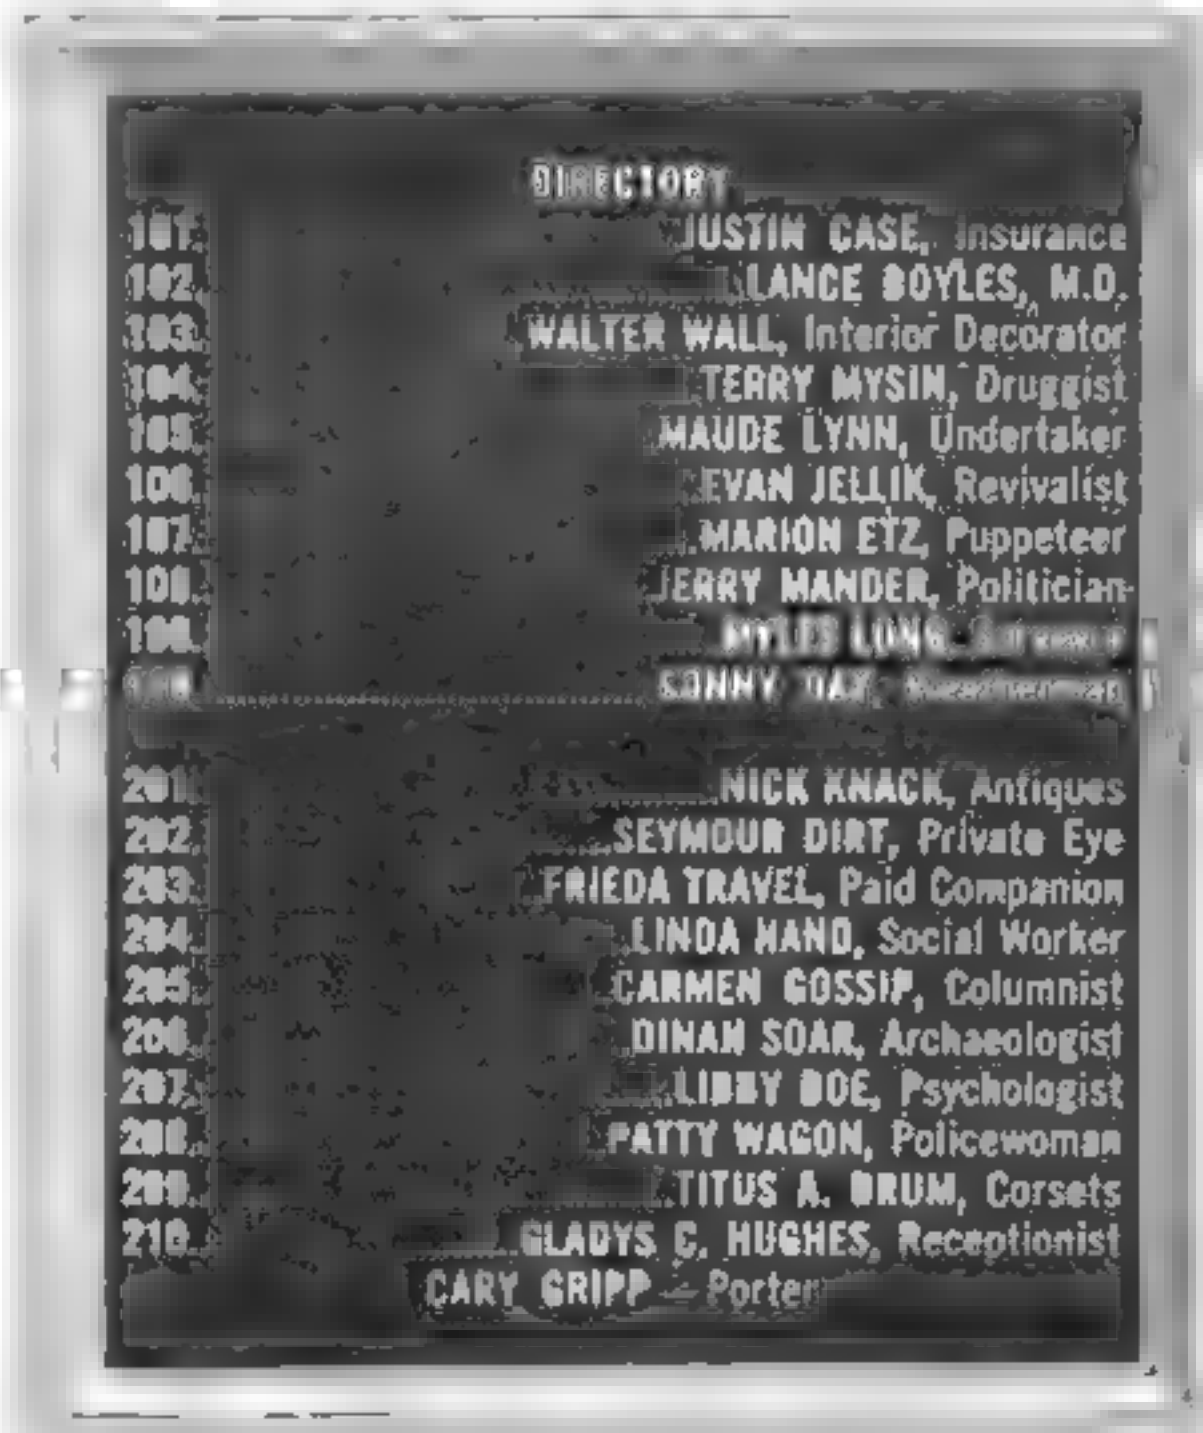 DIRECTORY
101. JUSTIN CASE, Insurance
102. LANCE BOYLES, M.D.
103. WALTER WALL, Interior Decorator
104. TERRY MYSIN, Druggist
105. MAUDE LYNN, Undertaker
106. EVAN JELLIK, Revivalist
107. MARION ETZ, Puppeteer
108. JERRY MANDER, Politician
109. MYLES LONG,
SONNY DAY,
201. NICK KNACK, Antiques
202. SEYMOUR DIRT, Private Eye
203. FRIEDA TRAVEL, Paid Companion
204. LINDA HAND, Social Worker
205. CARMEN GOSSIP, Columnist
206. DINAH SOAR, Archaeologist
207. LIBBY DOE, Psychologist
208. PATTY WAGON, Policewoman
209. TITUS A. DRUM, Corsets
210. GLADYS C. HUGHES, Receptionist
CARY GRIPP – Porter